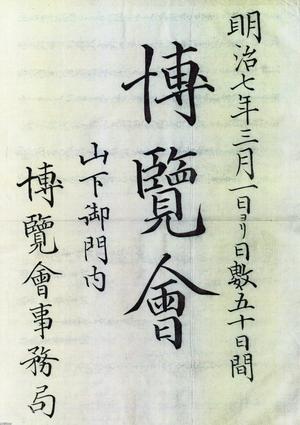 明治七年三月一日ヨリ日數五十日間
博覽會
山下御門内
博覽會事務局